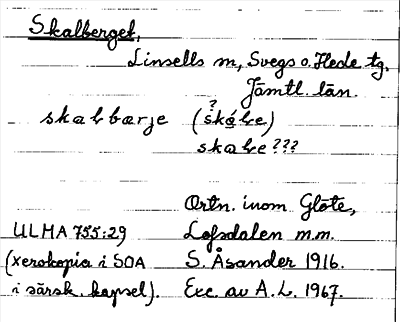 Skalberget,
Linsells m, Svegs o. Hede tg.
Jämtl. län.
skabbærje (skábe)
?
skabe???
Ortn. inom Glöte,
ULMA 755:29 Lofsdalen m.m.
(xerokopia i SOA S. Åsander 1916.
i särsk. kapsel). Exc. av A.L. 1967.